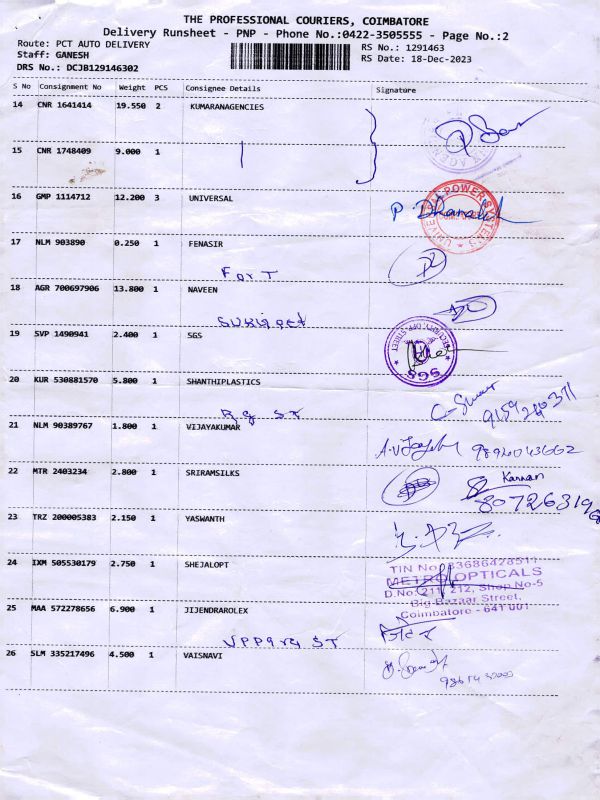 THE PROFESSIONAL COURIERS, COIMBATORE
Delivery Runsheet - PNP - Phone No.:0422-3505555 - Page No.:2
Route: PCT AUTO DELIVERY
Staff: GANESH
DRS No.: DCJB129146302
RS No.: 1291463
RS Date: 18-Dec-2023
S No Consignment No Weight PCS Consignee Details Signature
14 CNR 1641414 19.550 2 KUMARANAGENCIES
15 CNR 1748409 9.000 1
16 GMP 1114712 12.200 3 UNIVERSAL
UNIVERSAL POWER SYSTEMS
17 NLM 903890 0.250 1 FENASIR
Fort
18 AGR 700697906 13.800 1 NAVEEN
19 SVP 1490941 2.400 1 SGS
SGS
20 KUR 530881570 5.800 1 SHANTHIPLASTICS
Rg ST
21 NLM 90389767 1.800 1 VIJAYAKUMAR
9894043662
22 MTR 2403234 2.800 1 SRIRAMSILKS
Kannan
23 TRZ 200005383 2.150 1 YASWANTH
24 IXM 505530179 2.750 1 SHEJALOPT
TIN No
METRO OPTICALS
D.No: 211, 212, Shop No-5
Big Bazaar Street,
Coimbatore - 641 001
25 MAA 572278656 6.900 1 JIJENDRAROLEX
ST
26 SLM 335217496 4.500 1 VAISNAVI